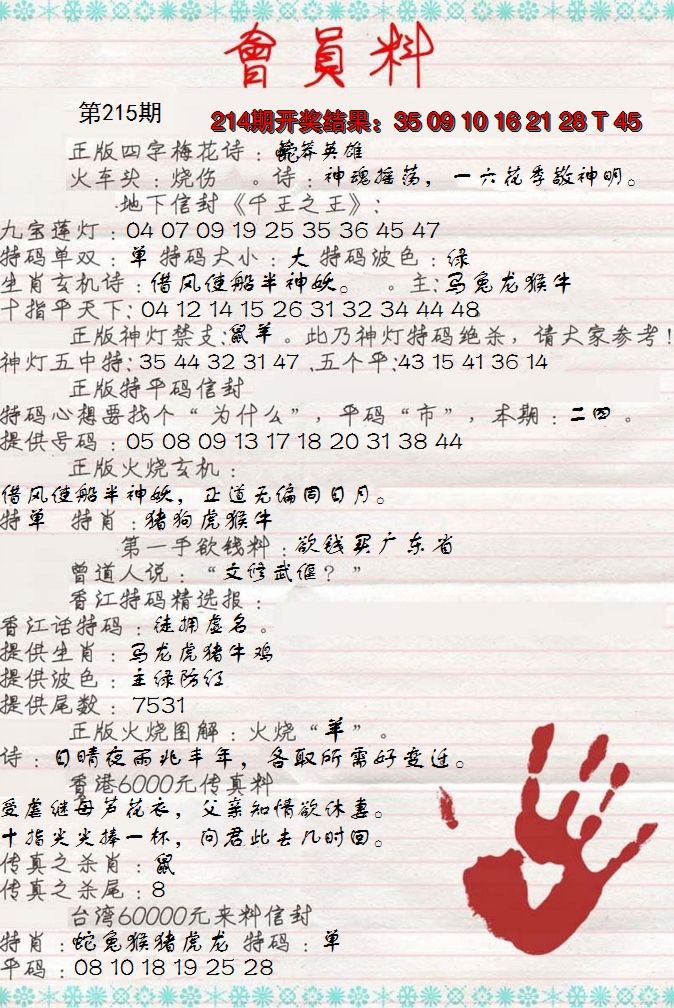 會員料
第215期
214期开奖结果：35 09 10 16 21 28 T 45
正版四字梅花诗：莽英雄
火车头：烧伤 。诗：神魂摇荡，一六花季敬神明。
地下信封《千王之王》：
九宝莲灯：04 07 09 19 25 35 36 45 47
特码单双：单 特码大小：大 特码波色：绿
生肖玄机诗：借风使船半神妖。 。主：马兔龙猴牛
十指平天下：04 12 14 15 26 31 32 34 44 48
正版神灯禁支：鼠羊。此乃神灯特码绝杀，请大家参考！
神灯五中特：35 44 32 31 47 .五个平：43 15 41 36 14
正版特平码信封
特码心想要找个“为什么”，平码“市”，本期：二四。
提供号码：05 08 09 13 17 18 20 31 38 44
正版火烧玄机：
借风使船半神妖，正道无偏同日月。
特单 特肖：猪狗虎猴牛
第一手欲钱料：欲钱买广东省
曾道人说：“文修武偃？”
香江特码精选报：
香江话特码：徒拥虚名。
提供生肖：马龙虎猪牛鸡
提供波色：主绿防红
提供尾数： 7531
正版火烧图解：火烧“羊”。
诗：日晴夜雨兆丰年，各取所需好变迁。
香港6000元传真料
受虐继母芦花衣，父亲知情欲休妻。
十指尖尖捧一杯，问君此去几时回。
传真之杀肖：鼠
传真之杀尾：8
台湾60000元来料信封
特肖：蛇兔猴猪虎龙 特码：单
平码：08 10 18 19 25 28